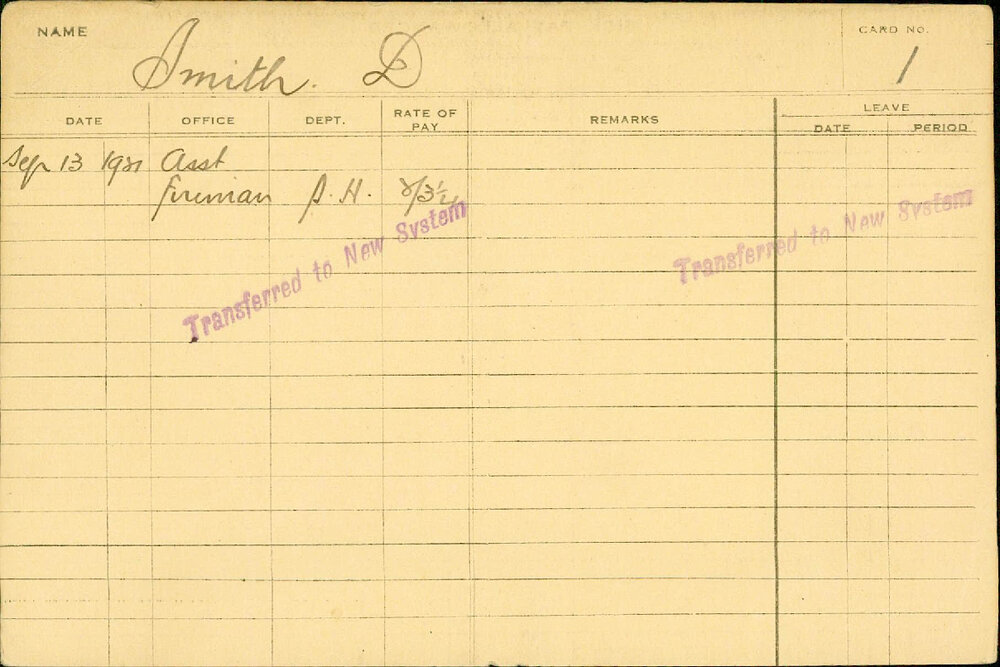 NAME Smith. D CARD NO. 1
DATE OFFICE DEPT. RATE OF PAY REMARKS LEAVE
DATE PERIOD
Sep 13 1921 Asst
fireman P.H.
Transferred to New System
Transferred to New System